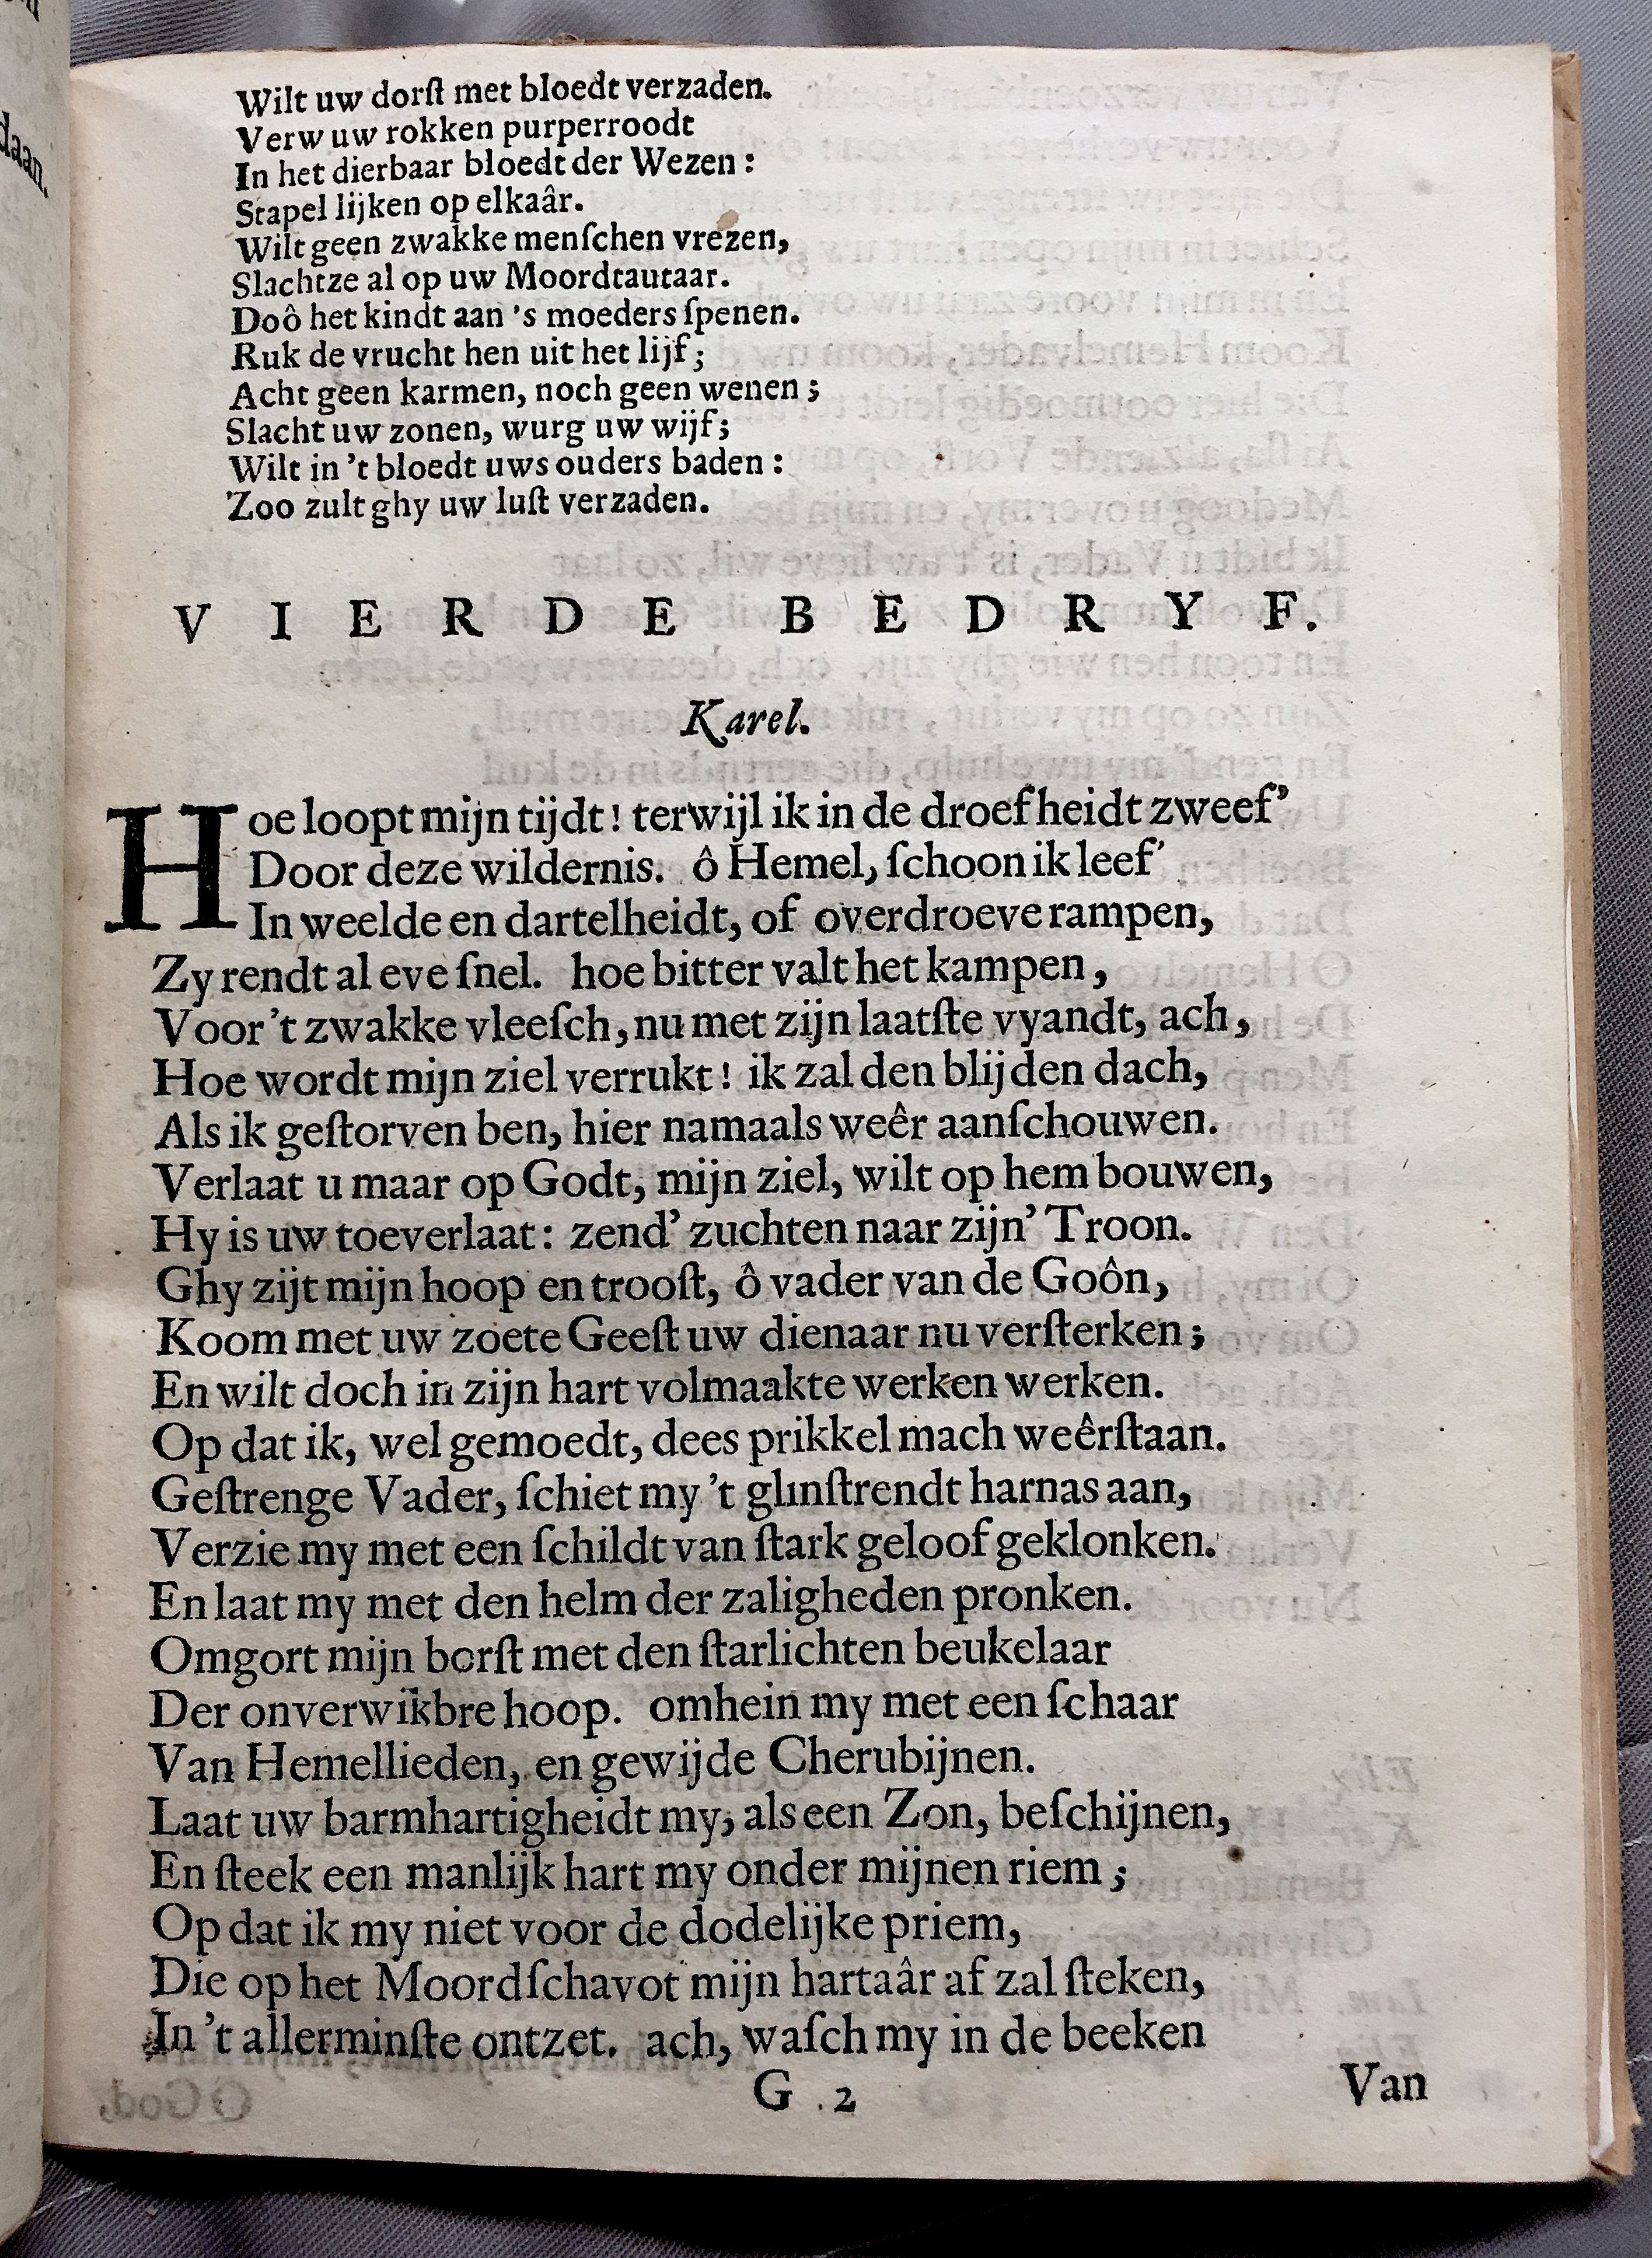 daan.
Wilt uw dorſt met bloedt verzaden.
Verw uw rokken purperroodt
In het dierbaar bloedt der Wezen:
Stapel lijken op elkaâr.
Wilt geen zwakke menſchen vrezen,
Slachtze al op uw Moordtautaar.
Doô het kindt aan 's moeders ſpenen.
Ruk de vrucht hen uit het lijf;
Acht geen karmen, noch geen wenen;
Slacht uw zonen, wurg uw wijf;
Wilt in 't bloedt uws ouders baden:
Zoo zult ghy uw luſt verzaden.
VIERDE BEDRYF.
Karel.
Hoe loopt mijn tijdt! terwijl ik in de droefheidt zweef'
Door deze wildernis. ô Hemel, ſchoon ik leef'
In weelde en dartelheidt, of overdroeve rampen,
Zy rendt al eve ſnel. hoe bitter valt het kampen,
Voor 't zwakke vleeſch, nu met zijn laatſte vyandt, ach,
Hoe wordt mijn ziel verrukt! ik zal den blijden dach,
Als ik geſtorven ben, hier namaals weêr aanſchouwen.
Verlaat u maar op Godt, mijn ziel, wilt op hem bouwen,
Hy is uw toeverlaat: zend' zuchten naar zijn' Troon.
Ghy zijt mijn hoop en trooſt, ô vader van de Goôn,
Koom met uw zoete Geeſt uw dienaar nu verſterken;
En wilt doch in zijn hart volmaakte werken werken.
Op dat ik, wel gemoedt, dees prikkel mach weêrſtaan.
Geſtrenge Vader, ſchiet my 't glinſtrendt harnas aan,
Verzie my met een ſchildt van ſtark geloof geklonken.
En laat my met den helm der zaligheden pronken.
Omgort mijn borſt met den ſtarlichten beukelaar
Der onverwikbre hoop. omhein my met een ſchaar
Van Hemellieden, en gewijde Cherubijnen.
Laat uw barmhartigheidt my, als een Zon, beſchijnen,
En ſteek een manlijk hart my onder mijnen riem;
Op dat ik my niet voor de dodelijke priem,
Die op het Moordſchavot mijn hartaâr af zal ſteken,
In 't allerminſte ontzet. ach, waſch my in de beeken
G 2
Van